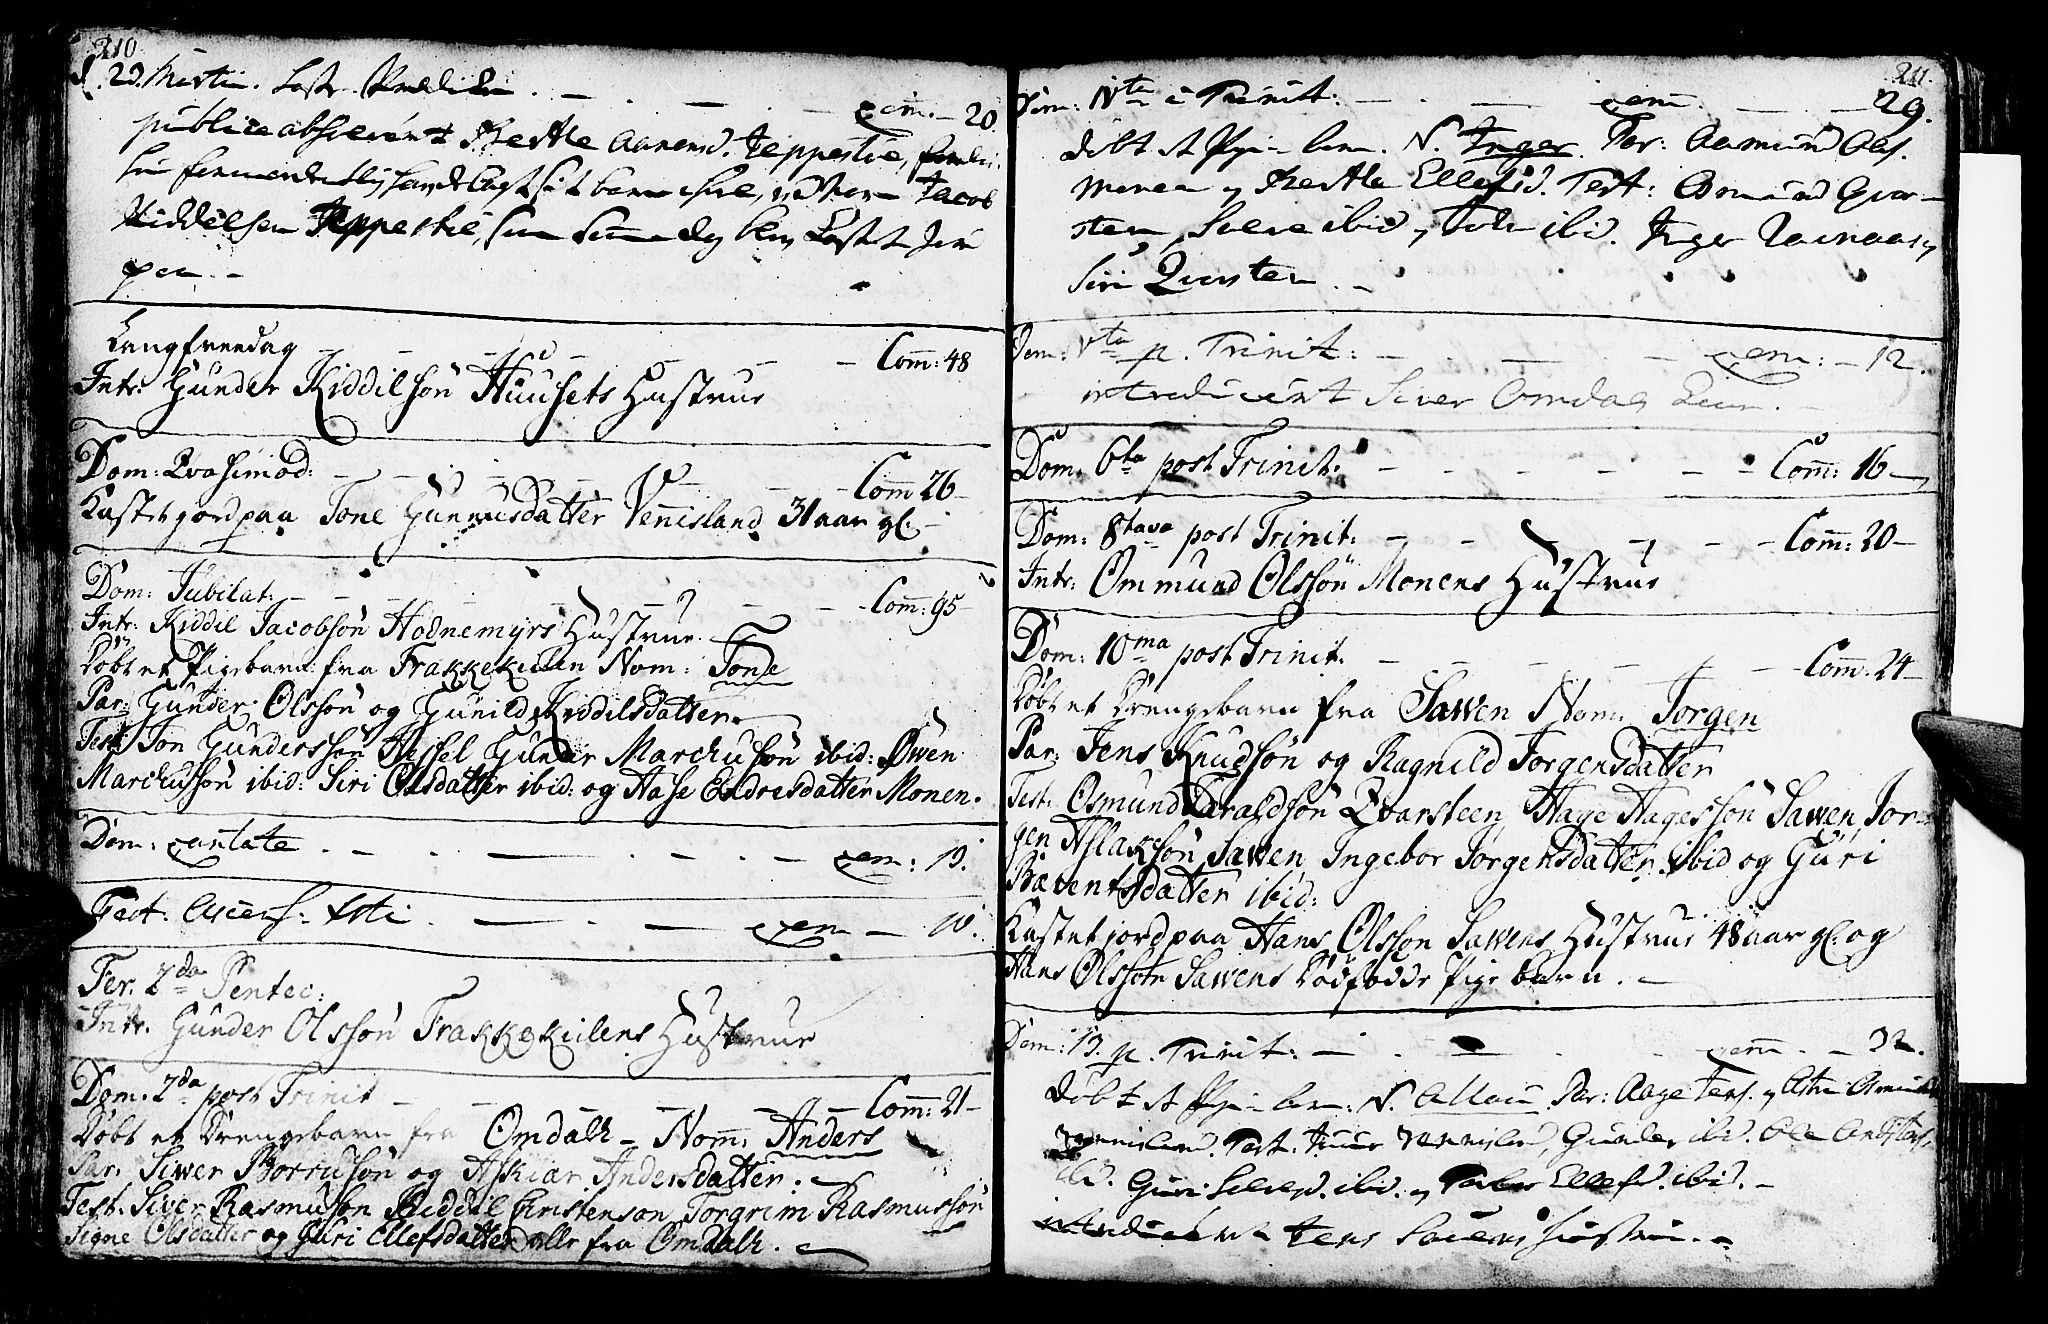 210
d. 29. Martii. Faste Prædiken. com. 20.
publice absolverit Kestle Aanensd. Jeppestöe, for
Kiddelsen Jeppestöe,
Langfreedag Com̄: 48
Intr: Gunder Kiddilsön Huusets Hustrue
Dom: Qvasimod: Com 26
Kastet jord paa Tone Gunnusdatter Vennisland 31 aar gl:
Dom: Jubilat: Com̄: 95
Intr: Kiddil Jacobsön Hodnemyrs Hustrue.
Döbt et Pigebarn fra Frakkekiilen Nom: Tone
Par: Gunder Olssön og Gunild Kiddilsdatter.
Test: Jon Gunderssön Hessel Gunder Marchusön ibid: Owen
Marchussön ibid: Siri Olsdatter ibid: og Aase Endresdatter Monen.
Dom: Cantate com: 19.
Fest: Ascens: Xsti. com 10.
Fer: 2da Pentec:
Intr. Gunder Olssön Frakkekiilens Hustrue
Dom. 2da post Trinit Com̄: 21
Döbt et Drengebarn fra Omdall Nom: Anders
Par: Siwer Borrusön og Askiær Andersdatter.
Test. Siver Rasmusön Kiddil Christenson, Torgrim Rasmussön
Signe Olsdatter og Guri Ellefsdatter alle fra Omdall.
211.
Dom: IVta à Trinit: com. 29.
döbt et Pige barn. N. Inger. Par: Aamund Ols.
Monen og Kestle Ellefsd. Test: Osmund Qvar-
sten, Salve ibid, Tolv ibid. Inger og
Siri Qvarsten.
Dom: Vta p. Trinit: com: 12.
introducert Siver Omdals Quin.
Dom: 6ta post Trinit: Com̄: 16
Dom: 8tava post Trinit: Com̄: 20
Intr: Ommund Olssön Monens Hustrue
Dom: 10ma post Trinit: Com̄: 24
Döbt et Drengebarn fra Sawen Nom: Jorgen
Par: Jens Knudsön og Ragnild Jorgensdatter
Test: Osmund Taraldsön Qvarsteen, Hage Hagessön Sawen, Jor-
gen Aslaksön Sawen, Ingebor Jorgensdatter ibid og Guri
Bærentsdatter ibid:
Kastet jord paa Hans Olsson Sawens Hustrue 48 aar gl: og
Hans Olsson Sawens Dödfödde Pige barn.
Dom: 13. p. Trinit: com. 32.
Döbt et Pige barn: N. Par: Aage Jens. og
Test. Vennisland, Gunder ibid. Ole
ibid. Guri Salvesd. ibid. og Ellefsd. ibid.
introducert Jens Sauens Hustrue.